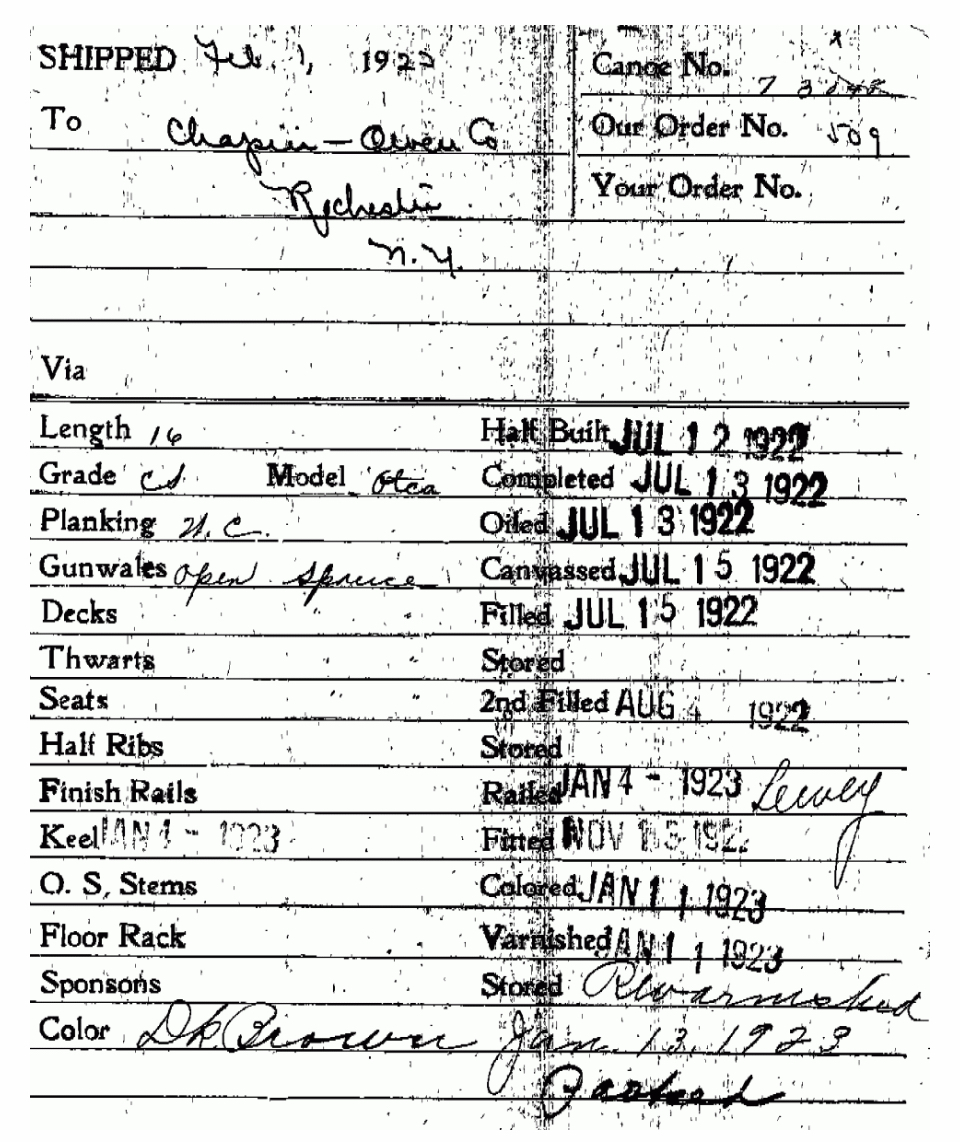 SHIPPED Feb. 1, 1923
Canoe No. 7
To Chapin-Owen Co
Our Order No. 509
Rochester
Your Order No.
N.Y.
Via
Length 16
Half Built JUL 12 1922
Grade CS Model Otca
Completed JUL 13 1922
Planking W.C.
Oiled JUL 13 1922
Gunwales open spruce
Canvassed JUL 15 1922
Decks
Filled JUL 15 1922
Thwarts " "
Stored
Seats " "
2nd Filled AUG 4 1922
Half Ribs
Stored
Finish Rails
Railed JAN 4 - 1923 Lewey
Keel JAN 4 - 1923
Fitted NOV 15 1922
O. S. Stems
Colored JAN 11 1923
Floor Rack
Varnished JAN 11 1923
Sponsons
Stored Revarnished
Color Dk Brown Jan. 13, 1923